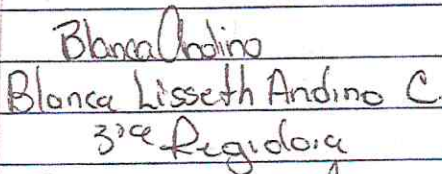 Blanca Andino
Blanca Lisseth Andino C.
3ra Regidora